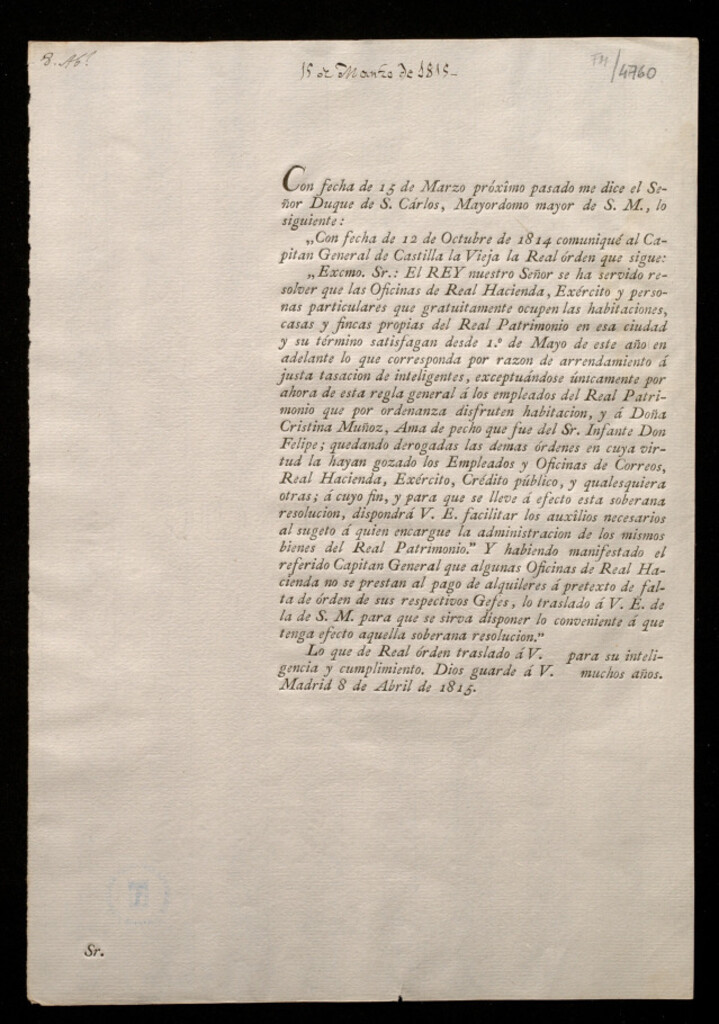 8. Ab.l
15 de Marzo de 1815-
FM/4760
Con fecha de 15 de Marzo próximo pasado me dice el Se-
ñor Duque de S. Cárlos, Mayordomo mayor de S. M., lo
siguiente:
„Con fecha de 12 de Octubre de 1814 comuniqué al Ca-
pitan General de Castilla la Vieja la Real órden que sigue:
„Excmo. Sr.: El REY nuestro Señor se ha servido re-
solver que las Oficinas de Real Hacienda, Exército y perso-
nas particulares que gratuitamente ocupen las habitaciones,
casas y fincas propias del Real Patrimonio en esa ciudad
y su término satisfagan desde 1.º de Mayo de este año en
adelante lo que corresponda por razon de arrendamiento á
justa tasacion de inteligentes, exceptuándose únicamente por
ahora de esta regla general á los empleados del Real Patri-
monio que por ordenanza disfruten habitacion, y á Doña
Cristina Muñoz, Ama de pecho que fue del Sr. Infante Don
Felipe; quedando derogadas las demas órdenes en cuya vir-
tud la hayan gozado los Empleados y Oficinas de Correos,
Real Hacienda, Exército, Crédito público, y qualesquiera
otras; á cuyo fin, y para que se lleve á efecto esta soberana
resolucion, dispondrá V. E. facilitar los auxîlios necesarios
al sugeto á quien encargue la administracion de los mismos
bienes del Real Patrimonio.” Y habiendo manifestado el
referido Capitan General que algunas Oficinas de Real Ha-
cienda no se prestan al pago de alquileres á pretexto de fal-
ta de órden de sus respectivos Gefes, lo traslado á V. E. de
la de S. M. para que se sirva disponer lo conveniente á que
tenga efecto aquella soberana resolucion.”
Lo que de Real órden traslado á V. para su inteli-
gencia y cumplimiento. Dios guarde á V. muchos años.
Madrid 8 de Abril de 1815.
Sr.